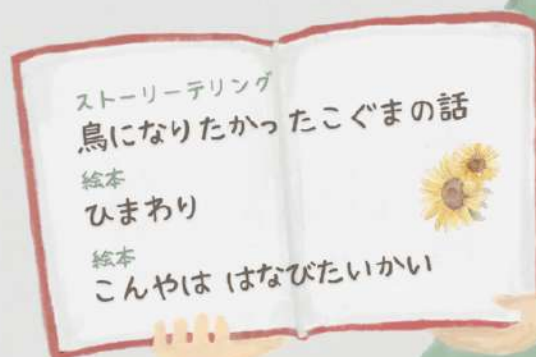 ストーリーテリング
鳥になりたかったこぐまの話
絵本
ひまわり
絵本
こんやは はなびたいかい